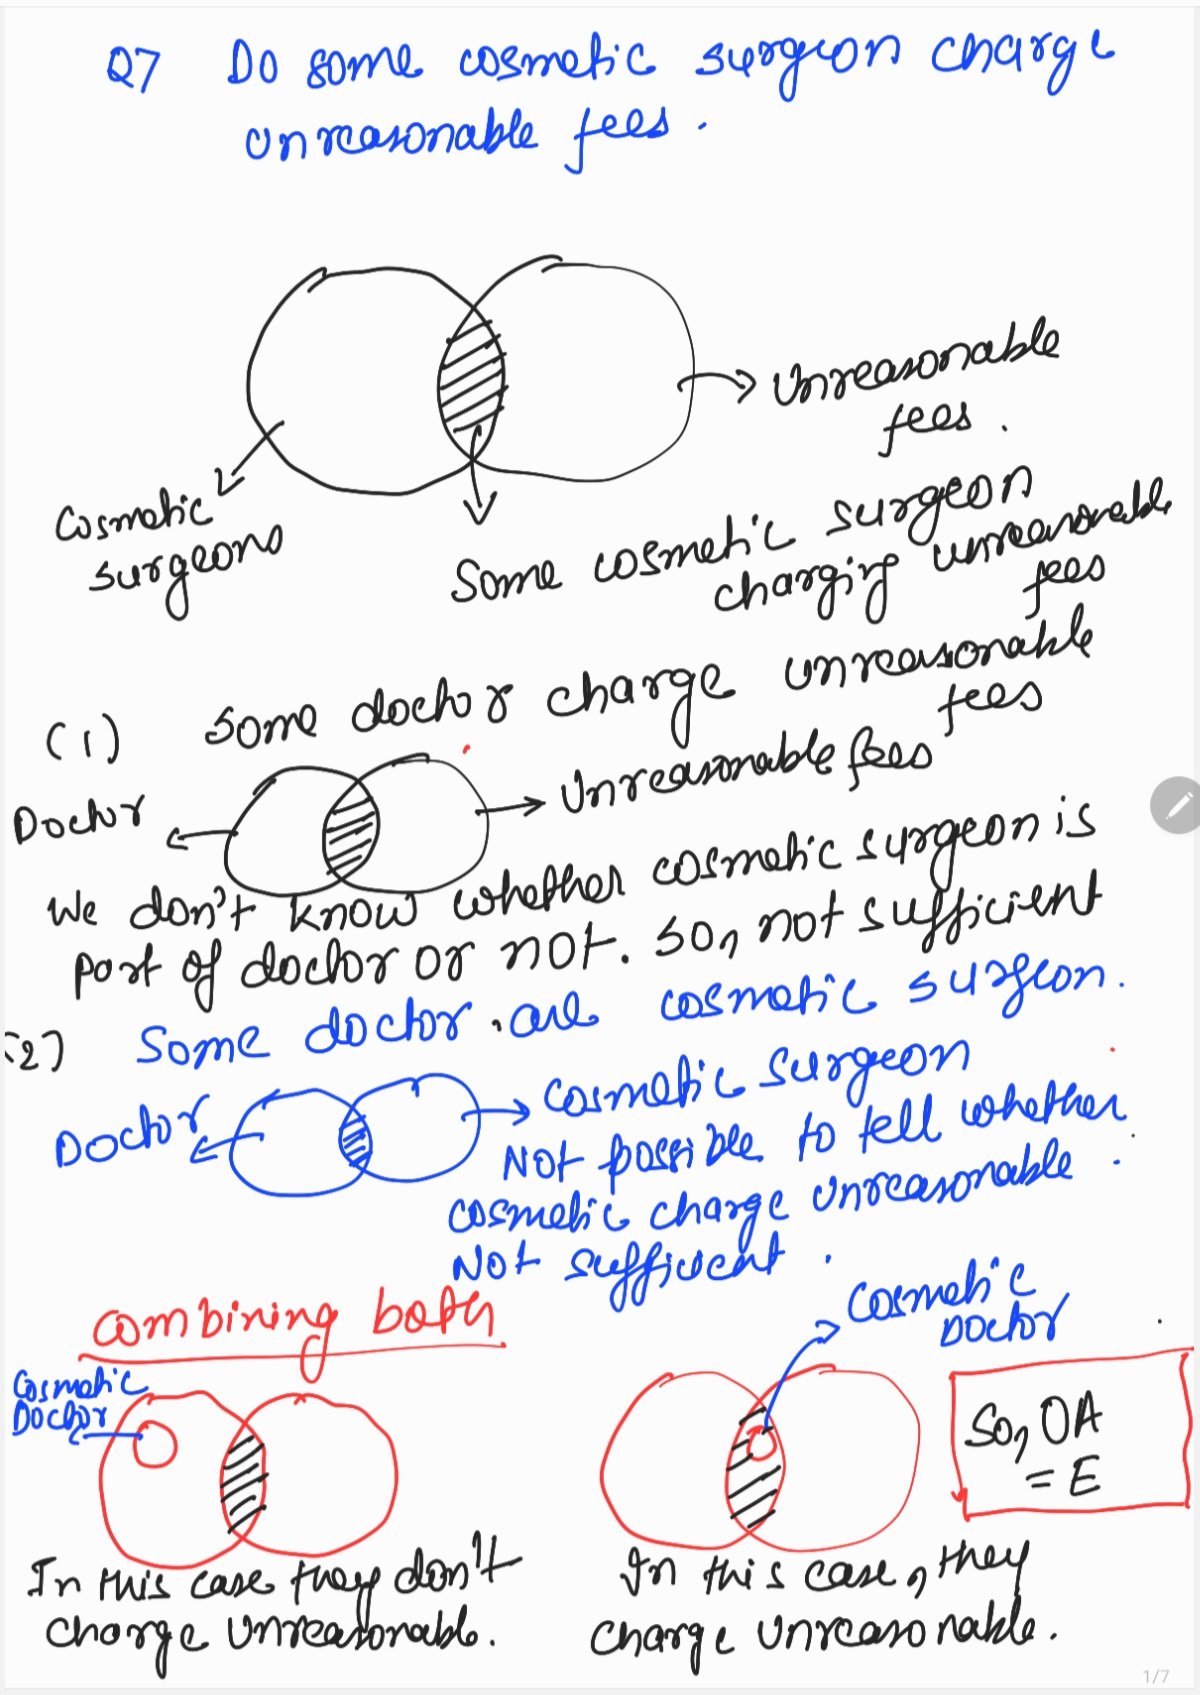 Q7 Do some cosmetic surgeon charge
unreasonable fees.
Unreasonable
fees.
Cosmetic
surgeons
Some cosmetic surgeon
charging unreasonable
fees
(1) Some doctor charge unreasonable
fees
Doctor
Unreasonable fees
We don't know whether cosmetic surgeon is
part of doctor or not. So, not sufficient
(2) Some doctor are cosmetic surgeon.
Doctor
Cosmetic surgeon
Not possible to tell whether
cosmetic charge unreasonable.
Not sufficient.
Combining both
Cosmetic
Doctor
Cosmetic
Doctor
So, OA
= E
In this case they don't
charge unreasonable.
In this case, they
charge unreasonable.
1/7